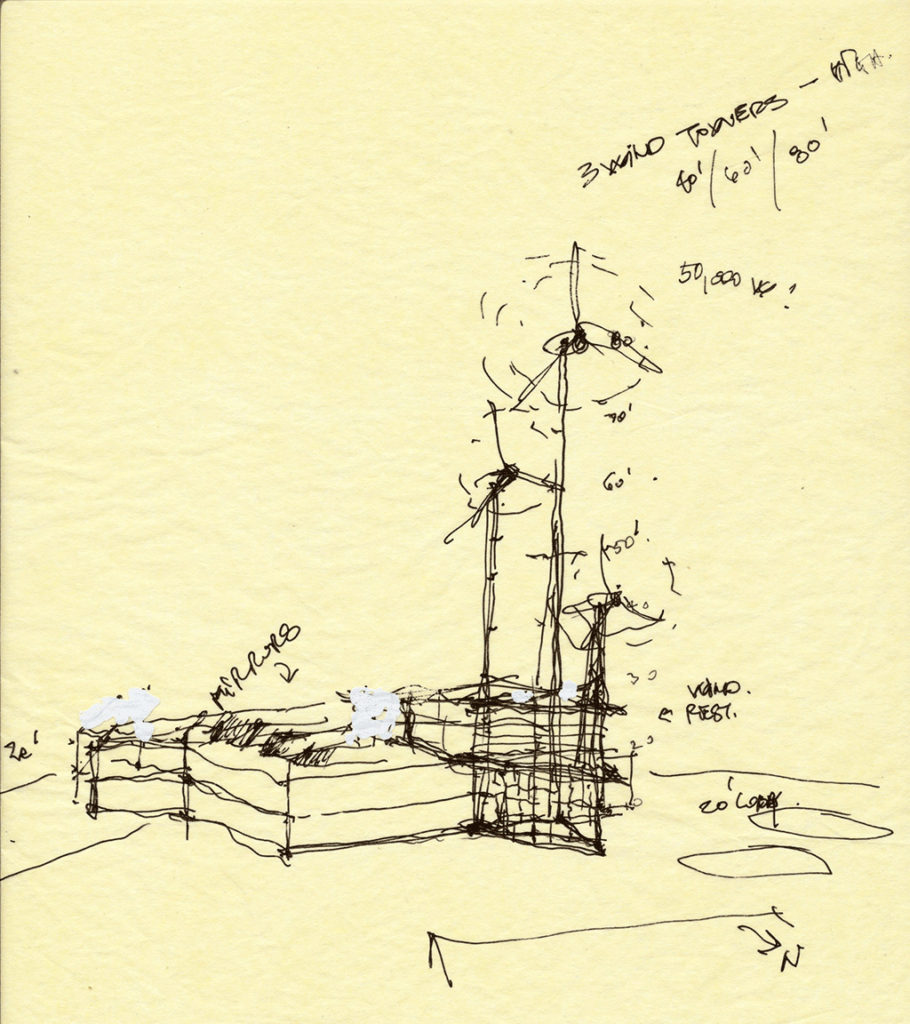 3 WIND TOWERS — HIGH.
40' / 60' / 80'
50,000
80
70'
60'
50'
40
30
MIRRORS
WIND.
REST.
20'
20
20'
10
N